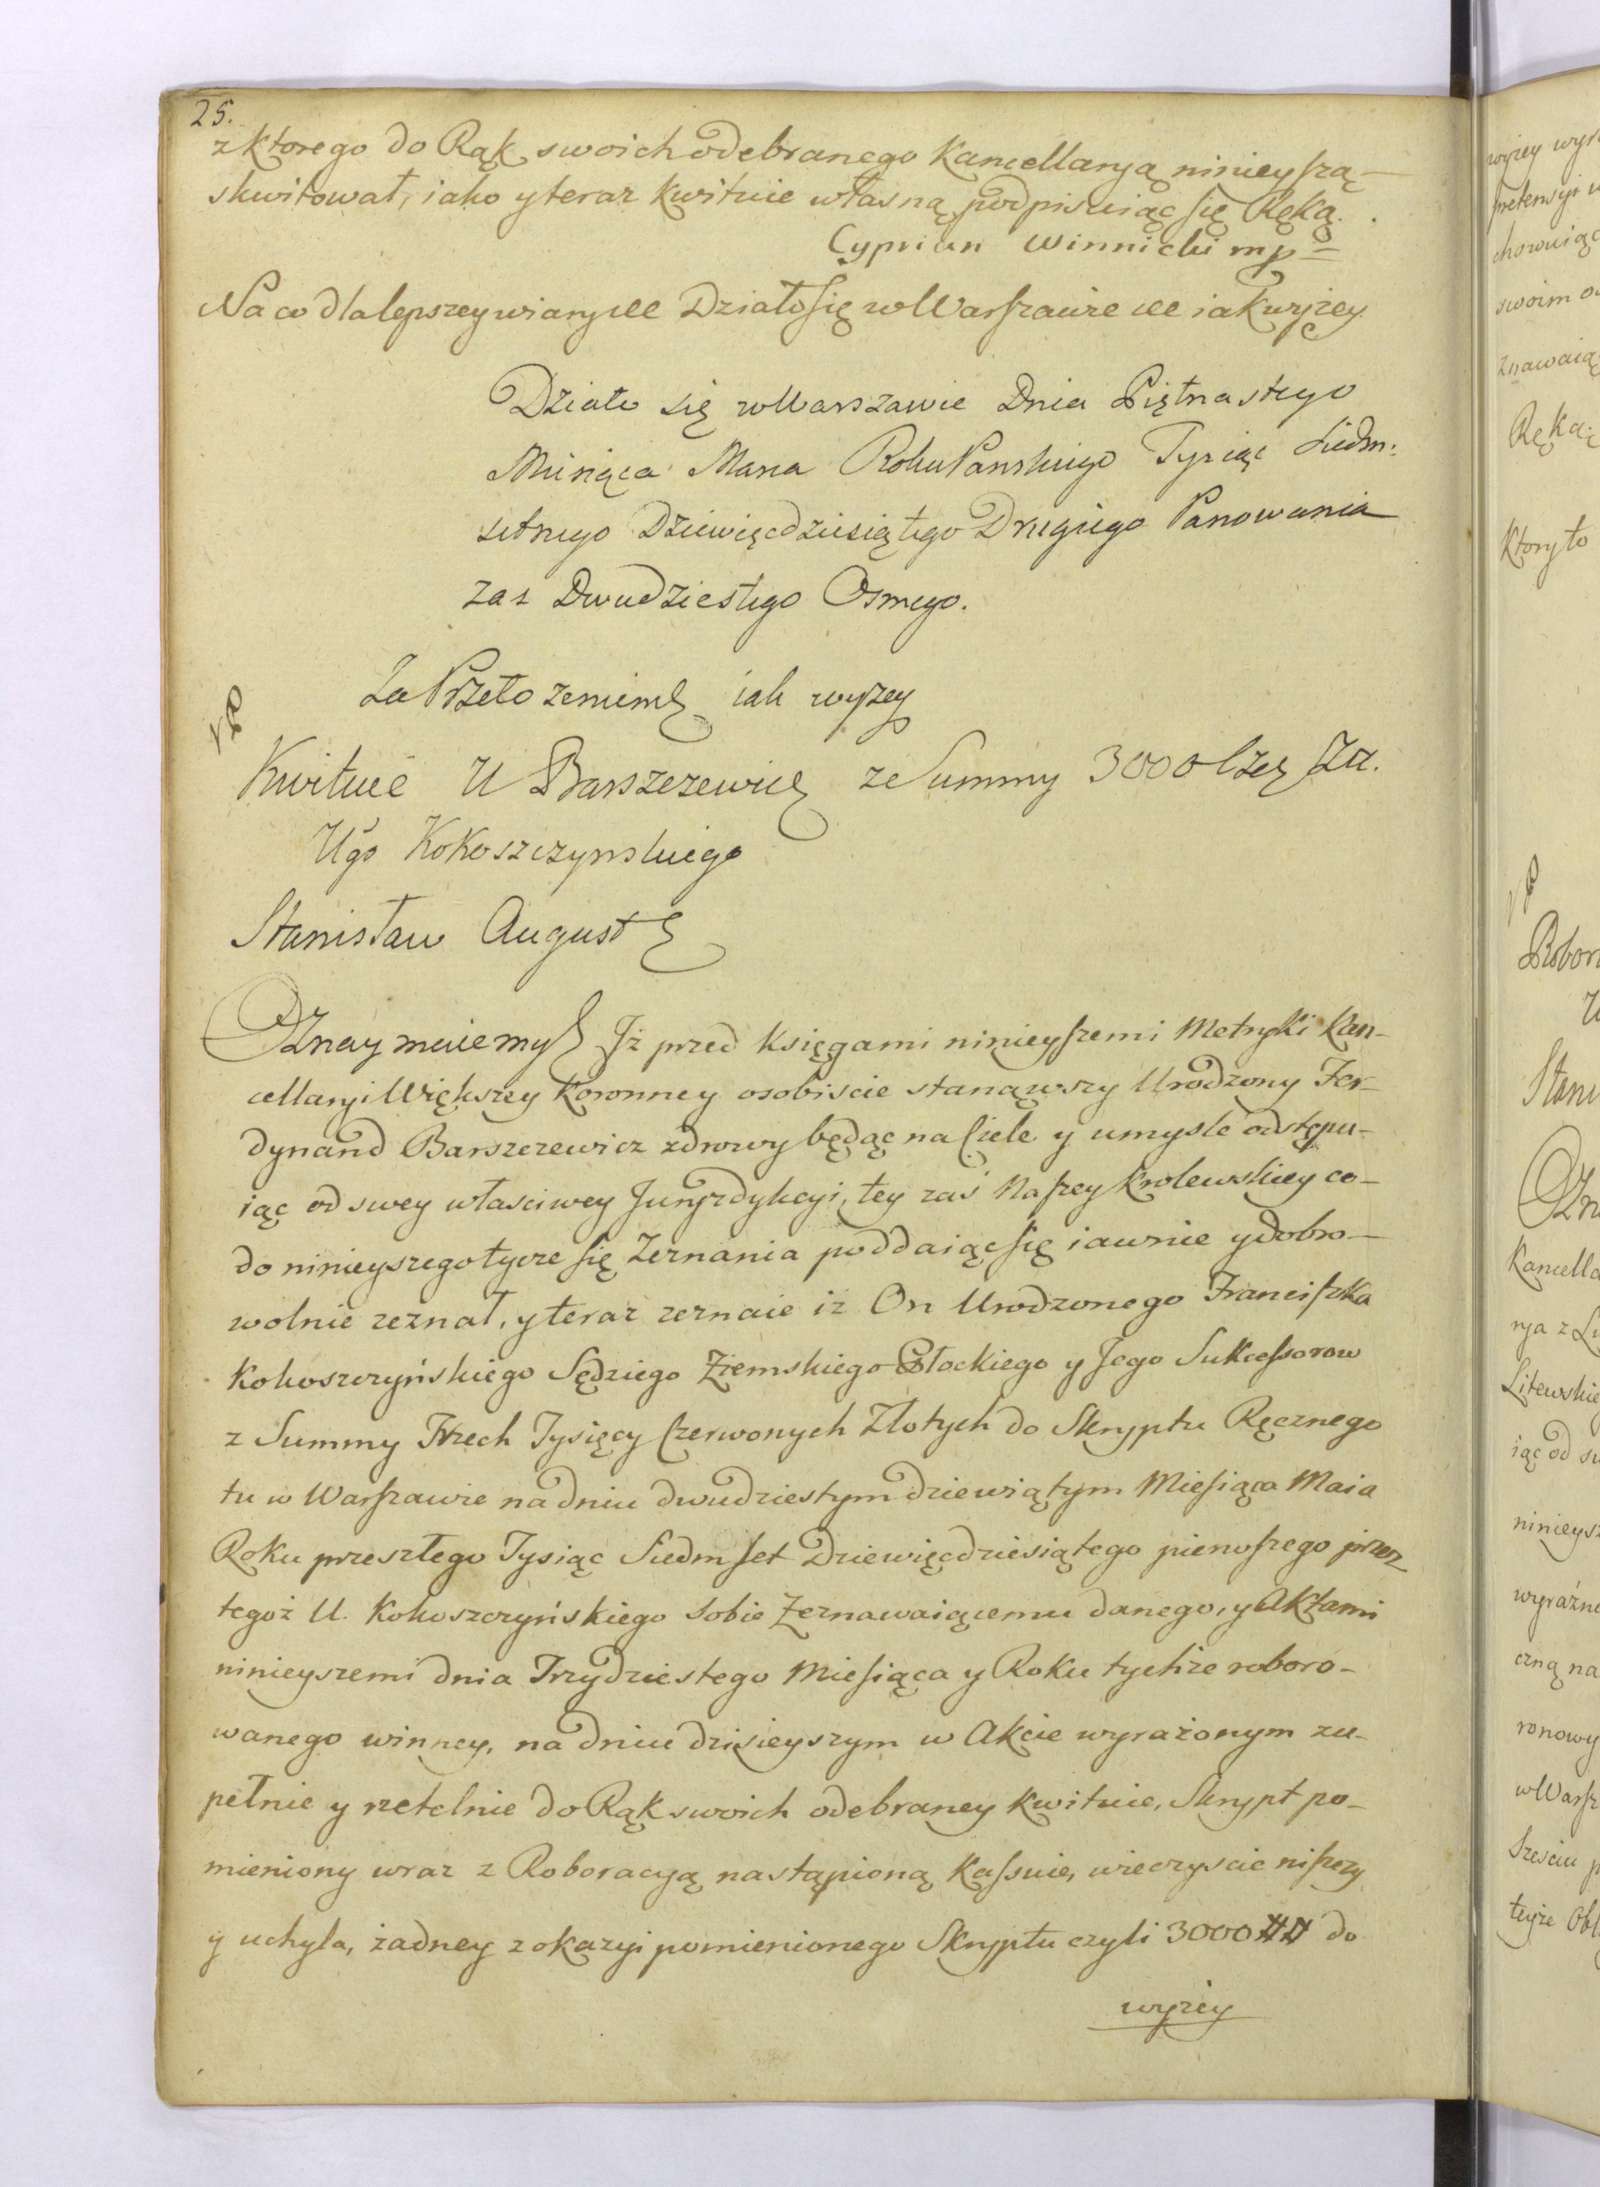 25.
z ktorego do Rąk swoich odebranego Kancellaryą ninieyszą
skwitował, iako y teraz kwituie własną podpisuiąc się Ręką.
Cyprian Winnicki mp
Na co dla lepszey wiary &c Działo się w Warszawie &c iak wyżey
Działo się w Warszawie Dnia Piętnastego
Miesiąca Maia Roku Pańskiego Tysiąc Siedm:
setnego Dziewięćdziesiątego Drugiego Panowania
zaś Dwudziestego Osmego.
Za Przełożeniem iak wyżey
Kwituie U Barszczewicz ze Summy 3000 Czer Zł.
Ugo Kokoszczynskiego
Stanisław August
Oznaymuiemy Iż przed Księgami ninieyszemi Metryki Kan-
cellaryi Większey Koronney osobiscie stanąwszy Urodzony Fer-
dynand Barszczewicz zdrowy będąc na Ciele y umysle odstępu-
iąc od swey własciwey Juryzdykcyi, tey zaś Naszey Krolewskiey co-
do ninieyszego tycze się Zeznania poddaiąc się iawnie y dobro-
wolnie zeznał, y teraz zeznaie iż On Urodzonego Franciszka
Kokoszczyńskiego Sędziego Ziemskiego Płockiego y Jego Sukcessorow
z Summy Trzech Tysięcy Czerwonych Złotych do Skryptu Ręcznego
tu w Warszawie na dniu dwudziestym dziewiątym Miesiąca Maia
Roku przeszłego Tysiąc Siedmset Dziewięćdziesiątego pierwszego przez
tegoż U. Kokoszczyńskiego Sobie Zeznawaiącemu danego, y Aktami
ninieyszemi dnia Trzydziestego Miesiąca y Roku tychże roboro-
wanego winney, na dniu dzisieyszym w Akcie wyrażonym zu-
pełnie y rzetelnie do Rąk swoich odebraney kwituie, Skrypt po-
mieniony wraz z Roboracyą nastąpioną kassuie, wieczyscie niszczy
y uchyla, żadney z okazyi pomienionego Skryptu czyli 3000 ## do
wyżey